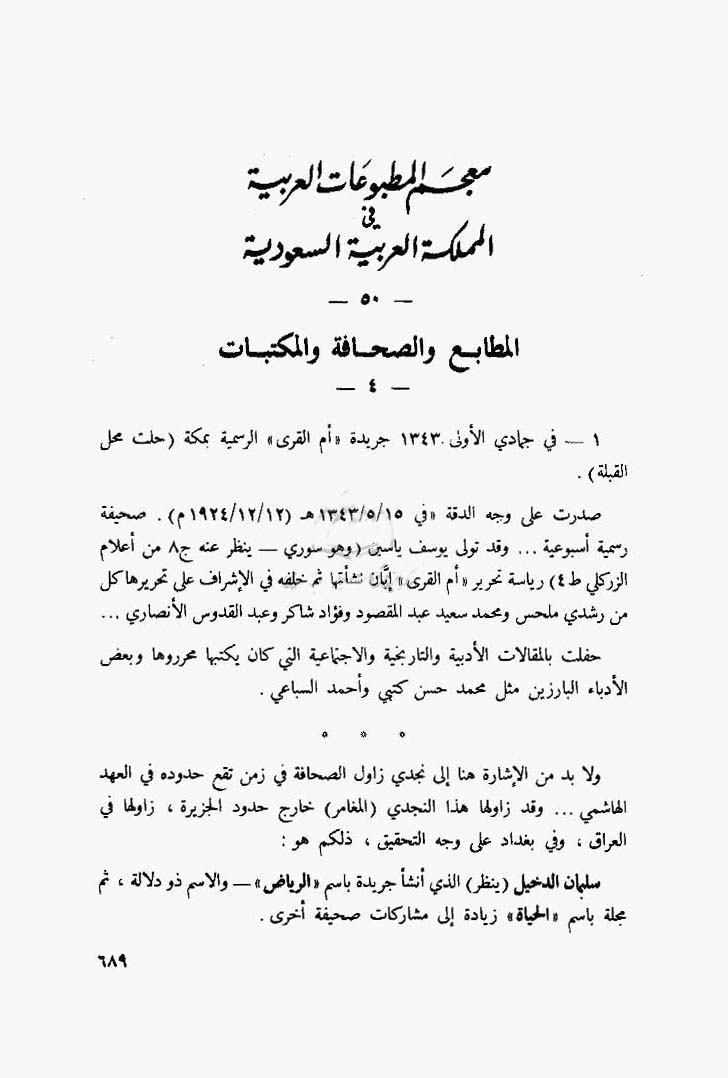 معجم المطبوعات العربية
في
المملكة العربية السعودية
— ٥٠ —
المطابع والصحافة والمكتبات
— ٤ —
١ — في جمادي الأولى ١٣٤٣ جريدة «أم القرى» الرسمية بمكة (حلت محل
القبلة) .
صدرت على وجه الدقة «في ١٣٤٣/٥/١٥هـ (١٩٢٤/١٢/١٢م) . صحيفة
رسمية أسبوعية ... وقد تولى يوسف ياسين (وهو سوري — ينظر عنه ج٨ من أعلام
الزركلي ط٤) رياسة تحرير «أم القرى» إبَّان نشأتها ثم خلفه في الإشراف على تحريرها كل
من رشدي ملحس ومحمد سعيد عبد المقصود وفؤاد شاكر وعبد القدوس الأنصاري ...
حفلت بالمقالات الأدبية والتاريخية والاجتماعية التي كان يكتبها محرروها وبعض
الأدباء البارزين مثل محمد حسن كتبي وأحمد السباعي .
* * *
ولا بد من الإشارة هنا إلى نجدي زاول الصحافة في زمن تقع حدوده في العهد
الهاشمي ... وقد زاولها هذا النجدي (المغامر) خارج حدود الجزيرة ، زاولها في
العراق ، وفي بغداد على وجه التحقيق ، ذلكم هو :
سليمان الدخيل (ينظر) الذي أنشأ جريدة باسم «الرياض» — والاسم ذو دلالة ، ثم
مجلة باسم «الحياة» زيادة إلى مشاركات صحيفة أخرى .
٦٨٩